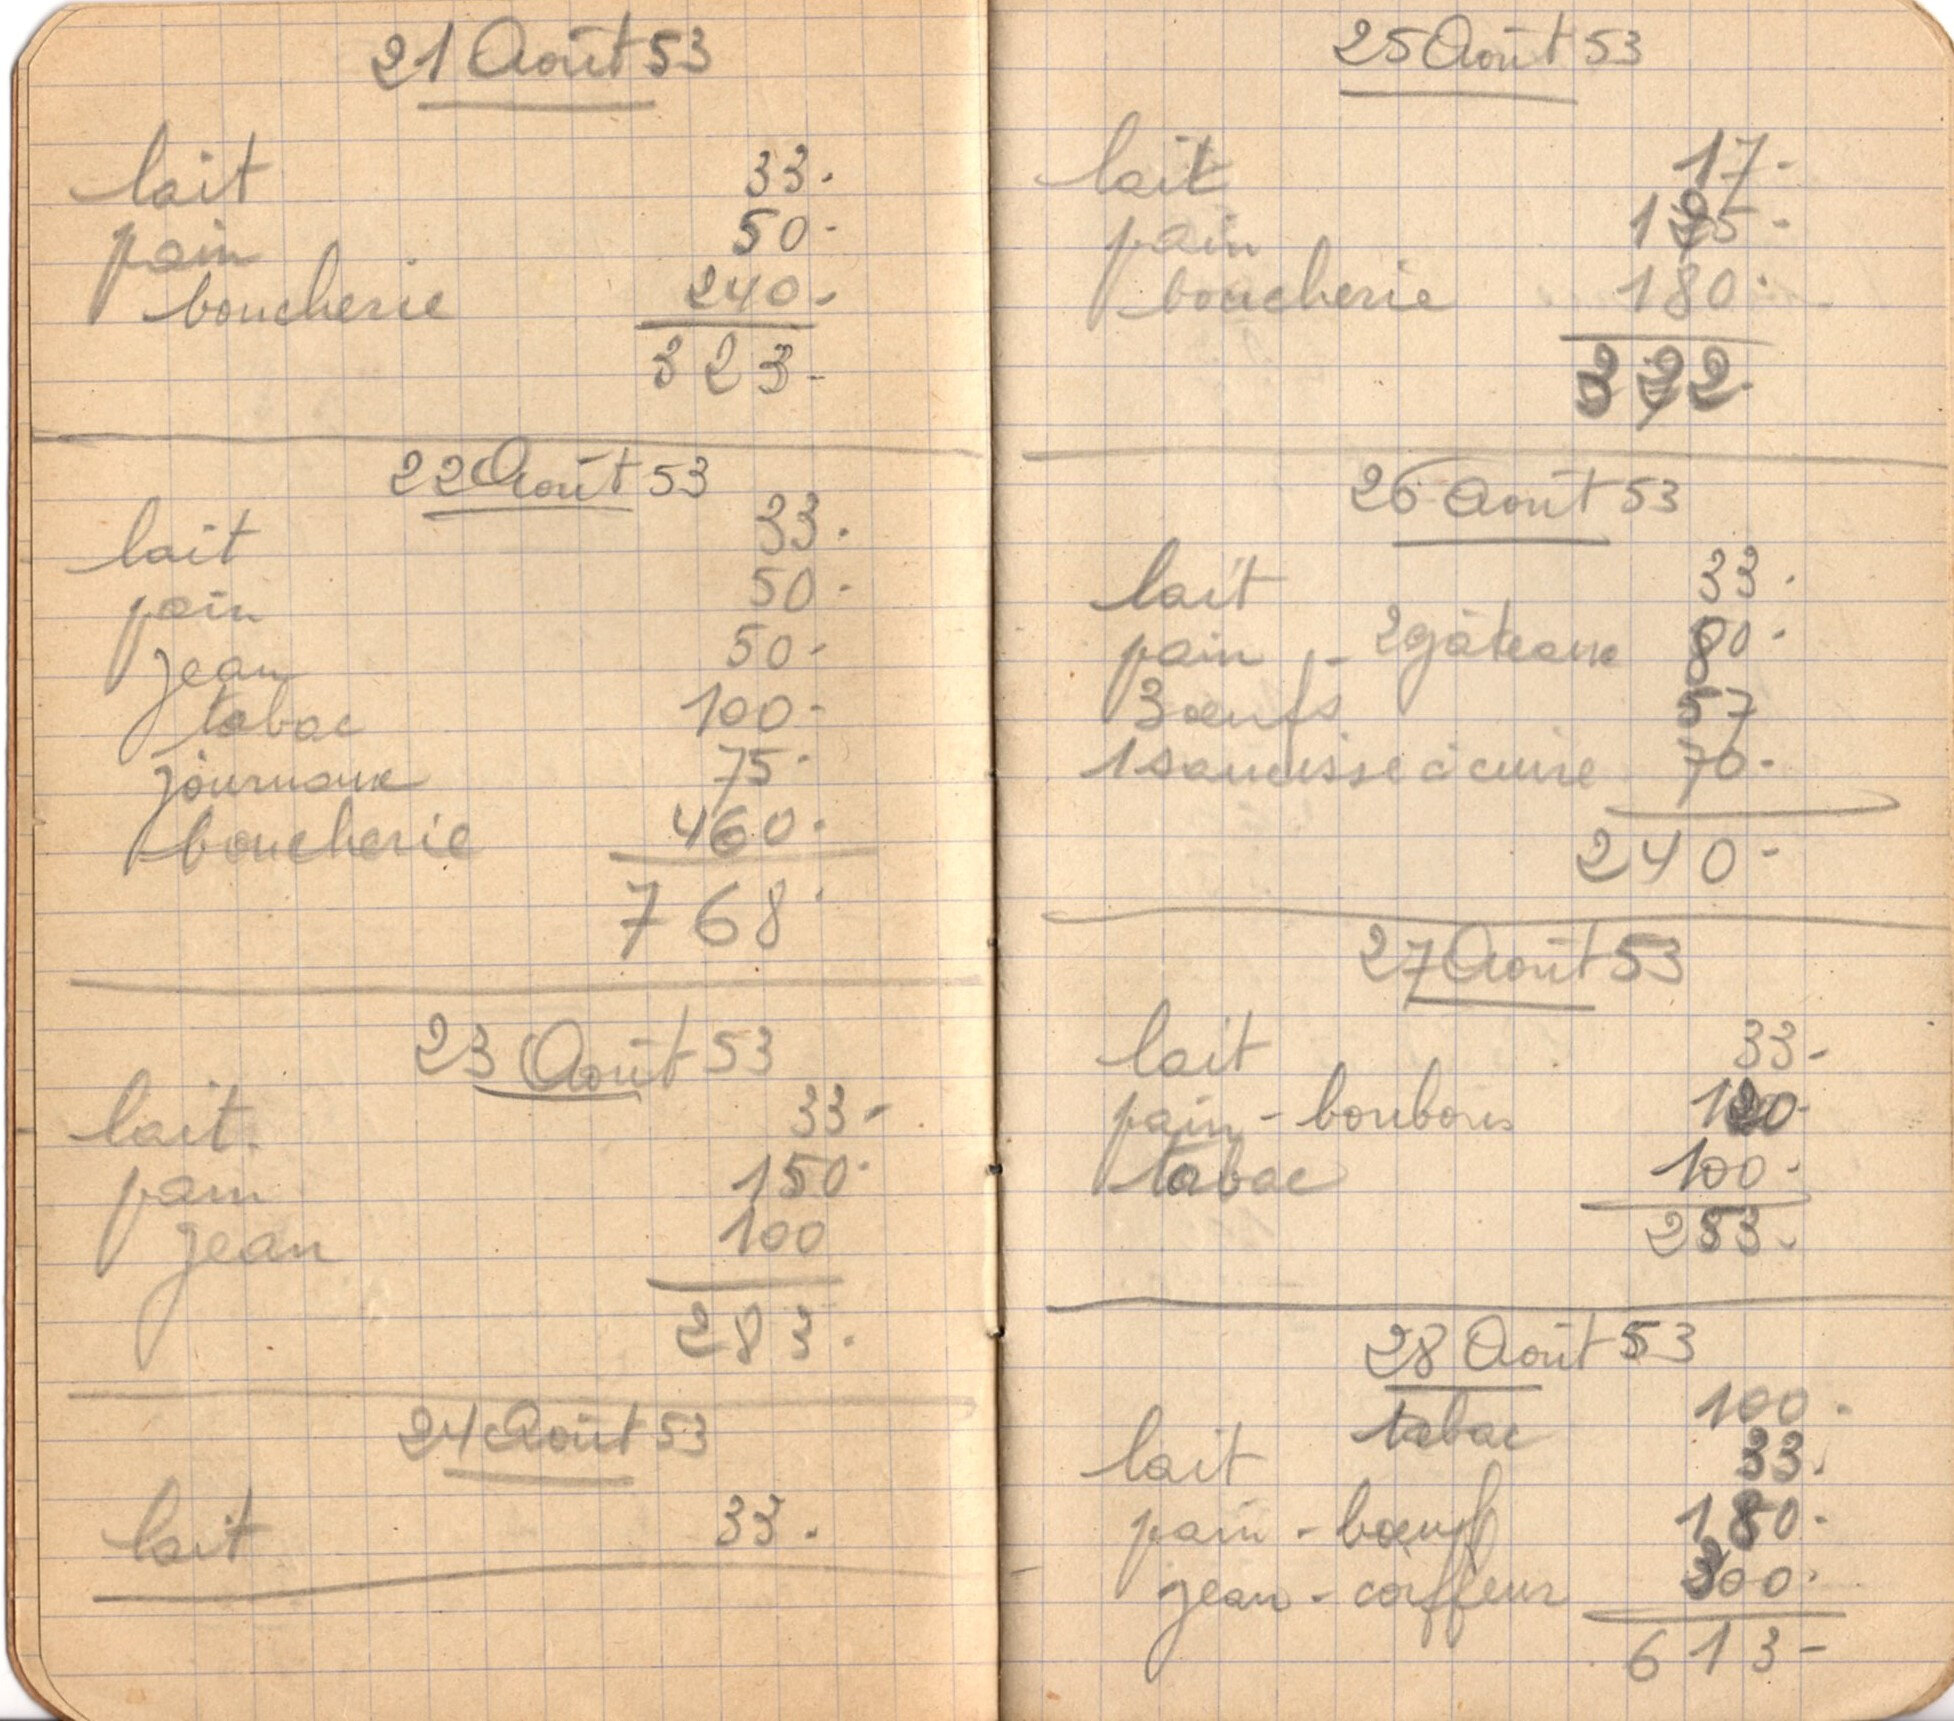 21 Août 53
lait 33.
pain 50.
boucherie 240.
323.
22 Août 53
lait 33.
pain 50.
jean 50.
tabac 100.
journaux 75.
boucherie 460.
768.
23 Août 53
lait 33.
pain 150.
jean 100
283.
24 Août 53
lait 33.
25 Août 53
lait 17.
pain
boucherie 180.
26 Août 53
lait 33.
pain - 2 gâteaux 80.
3 œufs 57
1 saucisse à cuire 70.
240.
27 Août 53
lait 33.
pain - bonbons 120.
tabac 100.
253.
28 Août 53
tabac 100.
lait 33.
pain - bœuf 180.
jean - coiffeur 300.
613.